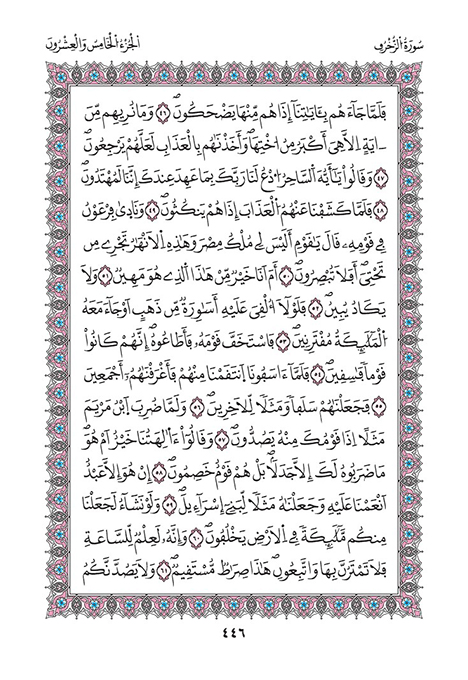 سُورَةُ الزُّخْرُفِ
الجُزْءُ الخَامِسُ وَالعِشْرُونَ
فَلَمَّا جَآءَهُم بِـَٔايَٰتِنَآ إِذَا هُم مِّنْهَا يَضْحَكُونَ ٤٦ وَمَا نُرِيهِم مِّنَ
ـَٔايَةٍ اِلَّا هِيَ أَكْبَرُ مِنُ اخْتِهَا وَأَخَذْنَٰهُم بِالْعَذَابِ لَعَلَّهُمْ يَرْجِعُونَ
٤٧ وَقَالُواْ يَٰٓأَيُّهَ اَ۬لسَّاحِرُ اُ۟دْعُ لَنَا رَبَّكَ بِمَا عَهِدَ عِندَكَ إِنَّنَا لَمُهْتَدُونَ
٤٨ فَلَمَّا كَشَفْنَا عَنْهُمُ اُ۬لْعَذَابَ إِذَا هُمْ يَنكُثُونَ ٤٩ وَنَادَىٰ فِرْعَوْنُ
فِے قَوْمِهِۦ قَالَ يَٰقَوْمِ أَلَيْسَ لِے مُلْكُ مِصْرَ وَهَٰذِهِ اِ۬لَانْهَٰرُ تَجْرِے مِن
تَحْتِيَ أَفَلَا تُبْصِرُونَ ٥٠ أَمَ اَنَا خَيْرٌ مِّنْ هَٰذَا اَ۬لذِے هُوَ مَهِينٌ ٥١ وَلَا
يَكَادُ يُبِينُ ٥٢ فَلَوْلَآ أُلْقِيَ عَلَيْهِ أَسَٰوِرَةٌ مِّن ذَهَبٍ اَوْ جَآءَ مَعَهُ
اُ۬لْمَلَٰٓئِكَةُ مُقْتَرِنِينَ ٥٣ فَاسْتَخَفَّ قَوْمَهُۥ فَأَطَاعُوهُ إِنَّهُمْ كَانُواْ
قَوْماً فَٰسِقِينَ ٥٤ فَلَمَّآ ءَاسَفُونَا اَ۪نتَقَمْنَا مِنْهُمْ فَأَغْرَقْنَٰهُمُۥٓ أَجْمَعِينَ
٥٥ فَجَعَلْنَٰهُمْ سَلَفاً وَمَثَلًا لِّلَاخِرِينَ ٥٦ وَلَمَّا ضُرِبَ اَ۪بْنُ مَرْيَمَ
مَثَلًا اِذَا قَوْمُكَ مِنْهُ يَصُدُّونَ ٥٧ وَقَالُوٓاْ ءَا۬لِهَتُنَا خَيْرٌ اَمْ هُوَ
مَا ضَرَبُوهُ لَكَ إِلَّا جَدَلَا بَلْ هُمْ قَوْمٌ خَصِمُونَ ٥٨ إِنْ هُوَ إِلَّا عَبْدٌ
اَنْعَمْنَا عَلَيْهِ وَجَعَلْنَٰهُ مَثَلًا لِّبَنِےٓ إِسْرَآءِيلَ ٥٩ وَلَوْ نَشَآءُ لَجَعَلْنَا
مِنكُم مَّلَٰٓئِكَةً فِے اِ۬لَارْضِ يَخْلُفُونَ ٦٠ وَإِنَّهُۥ لَعِلْمٌ لِّلسَّاعَةِ
فَلَا تَمْتَرُنَّ بِهَا وَاتَّبِعُونِ هَٰذَا صِرَٰطٌ مُّسْتَقِيمٌ ٦١ وَلَا يَصُدَّنَّكُمُ
٤٤٦